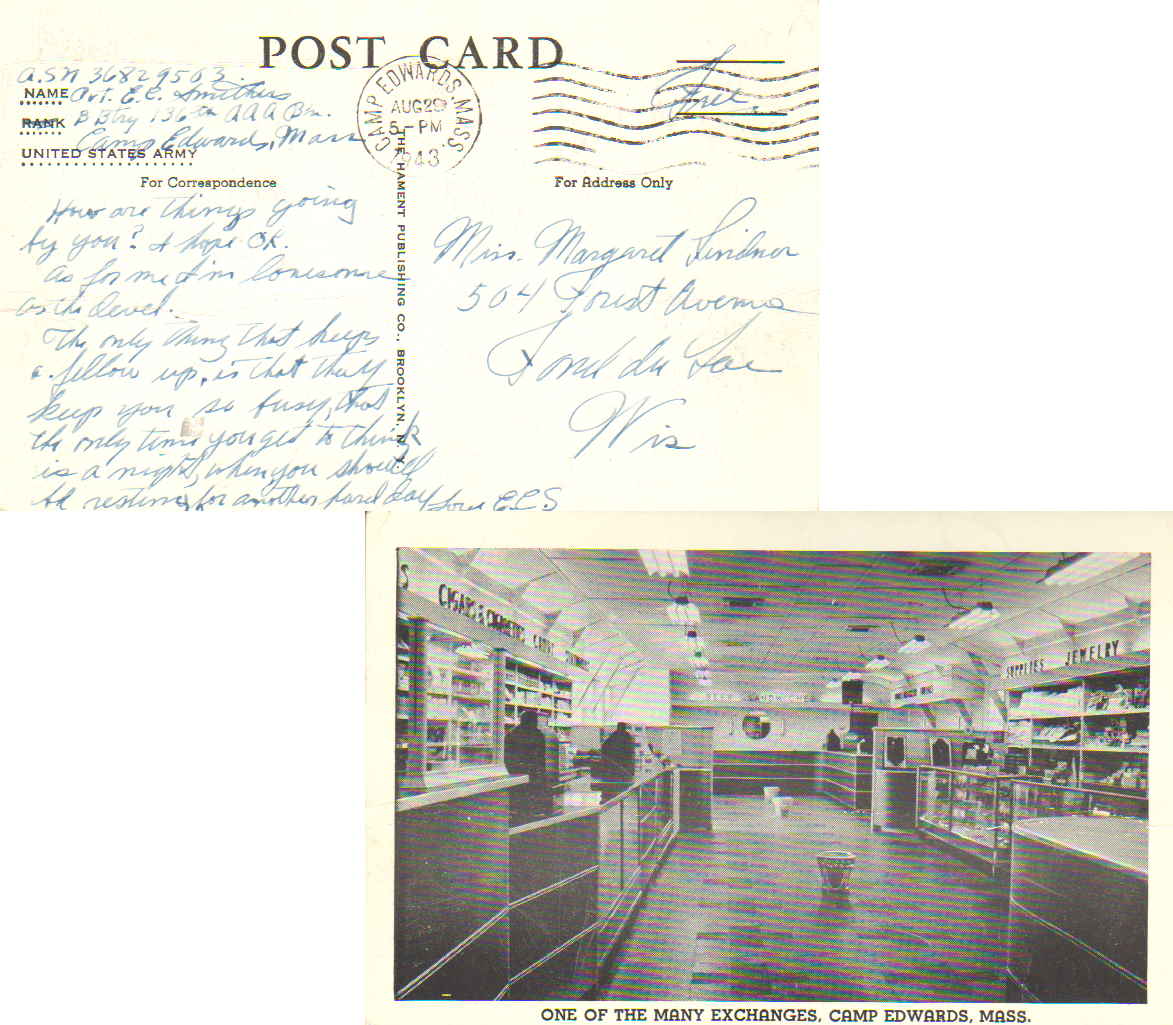 POST CARD
A.S.N 36829503.
NAME Pvt. E.C. Smithers
RANK B Btry 136th AAA Bn.
Camp Edwards, Mass
UNITED STATES ARMY
CAMP EDWARDS, MASS.
AUG 29
5 - PM
1943
Free
For Correspondence
For Address Only
How are things going
by you? I hope OK.
As for me I'm lonesome
as the devel.
The only thing that keeps
a fellow up, is that they
keep you so busy, that
the only time you get to think
is a night, when you should
be resting for another hard day
Love E.C.S
THE HAMENT PUBLISHING CO., BROOKLYN, N. Y.
Miss. Margaret Lindner
504 Forest Avenue
Fond du Lac
Wis
CIGARS & CIGARETTES CANDY
SUPPLIES JEWELRY
ONE OF THE MANY EXCHANGES, CAMP EDWARDS, MASS.